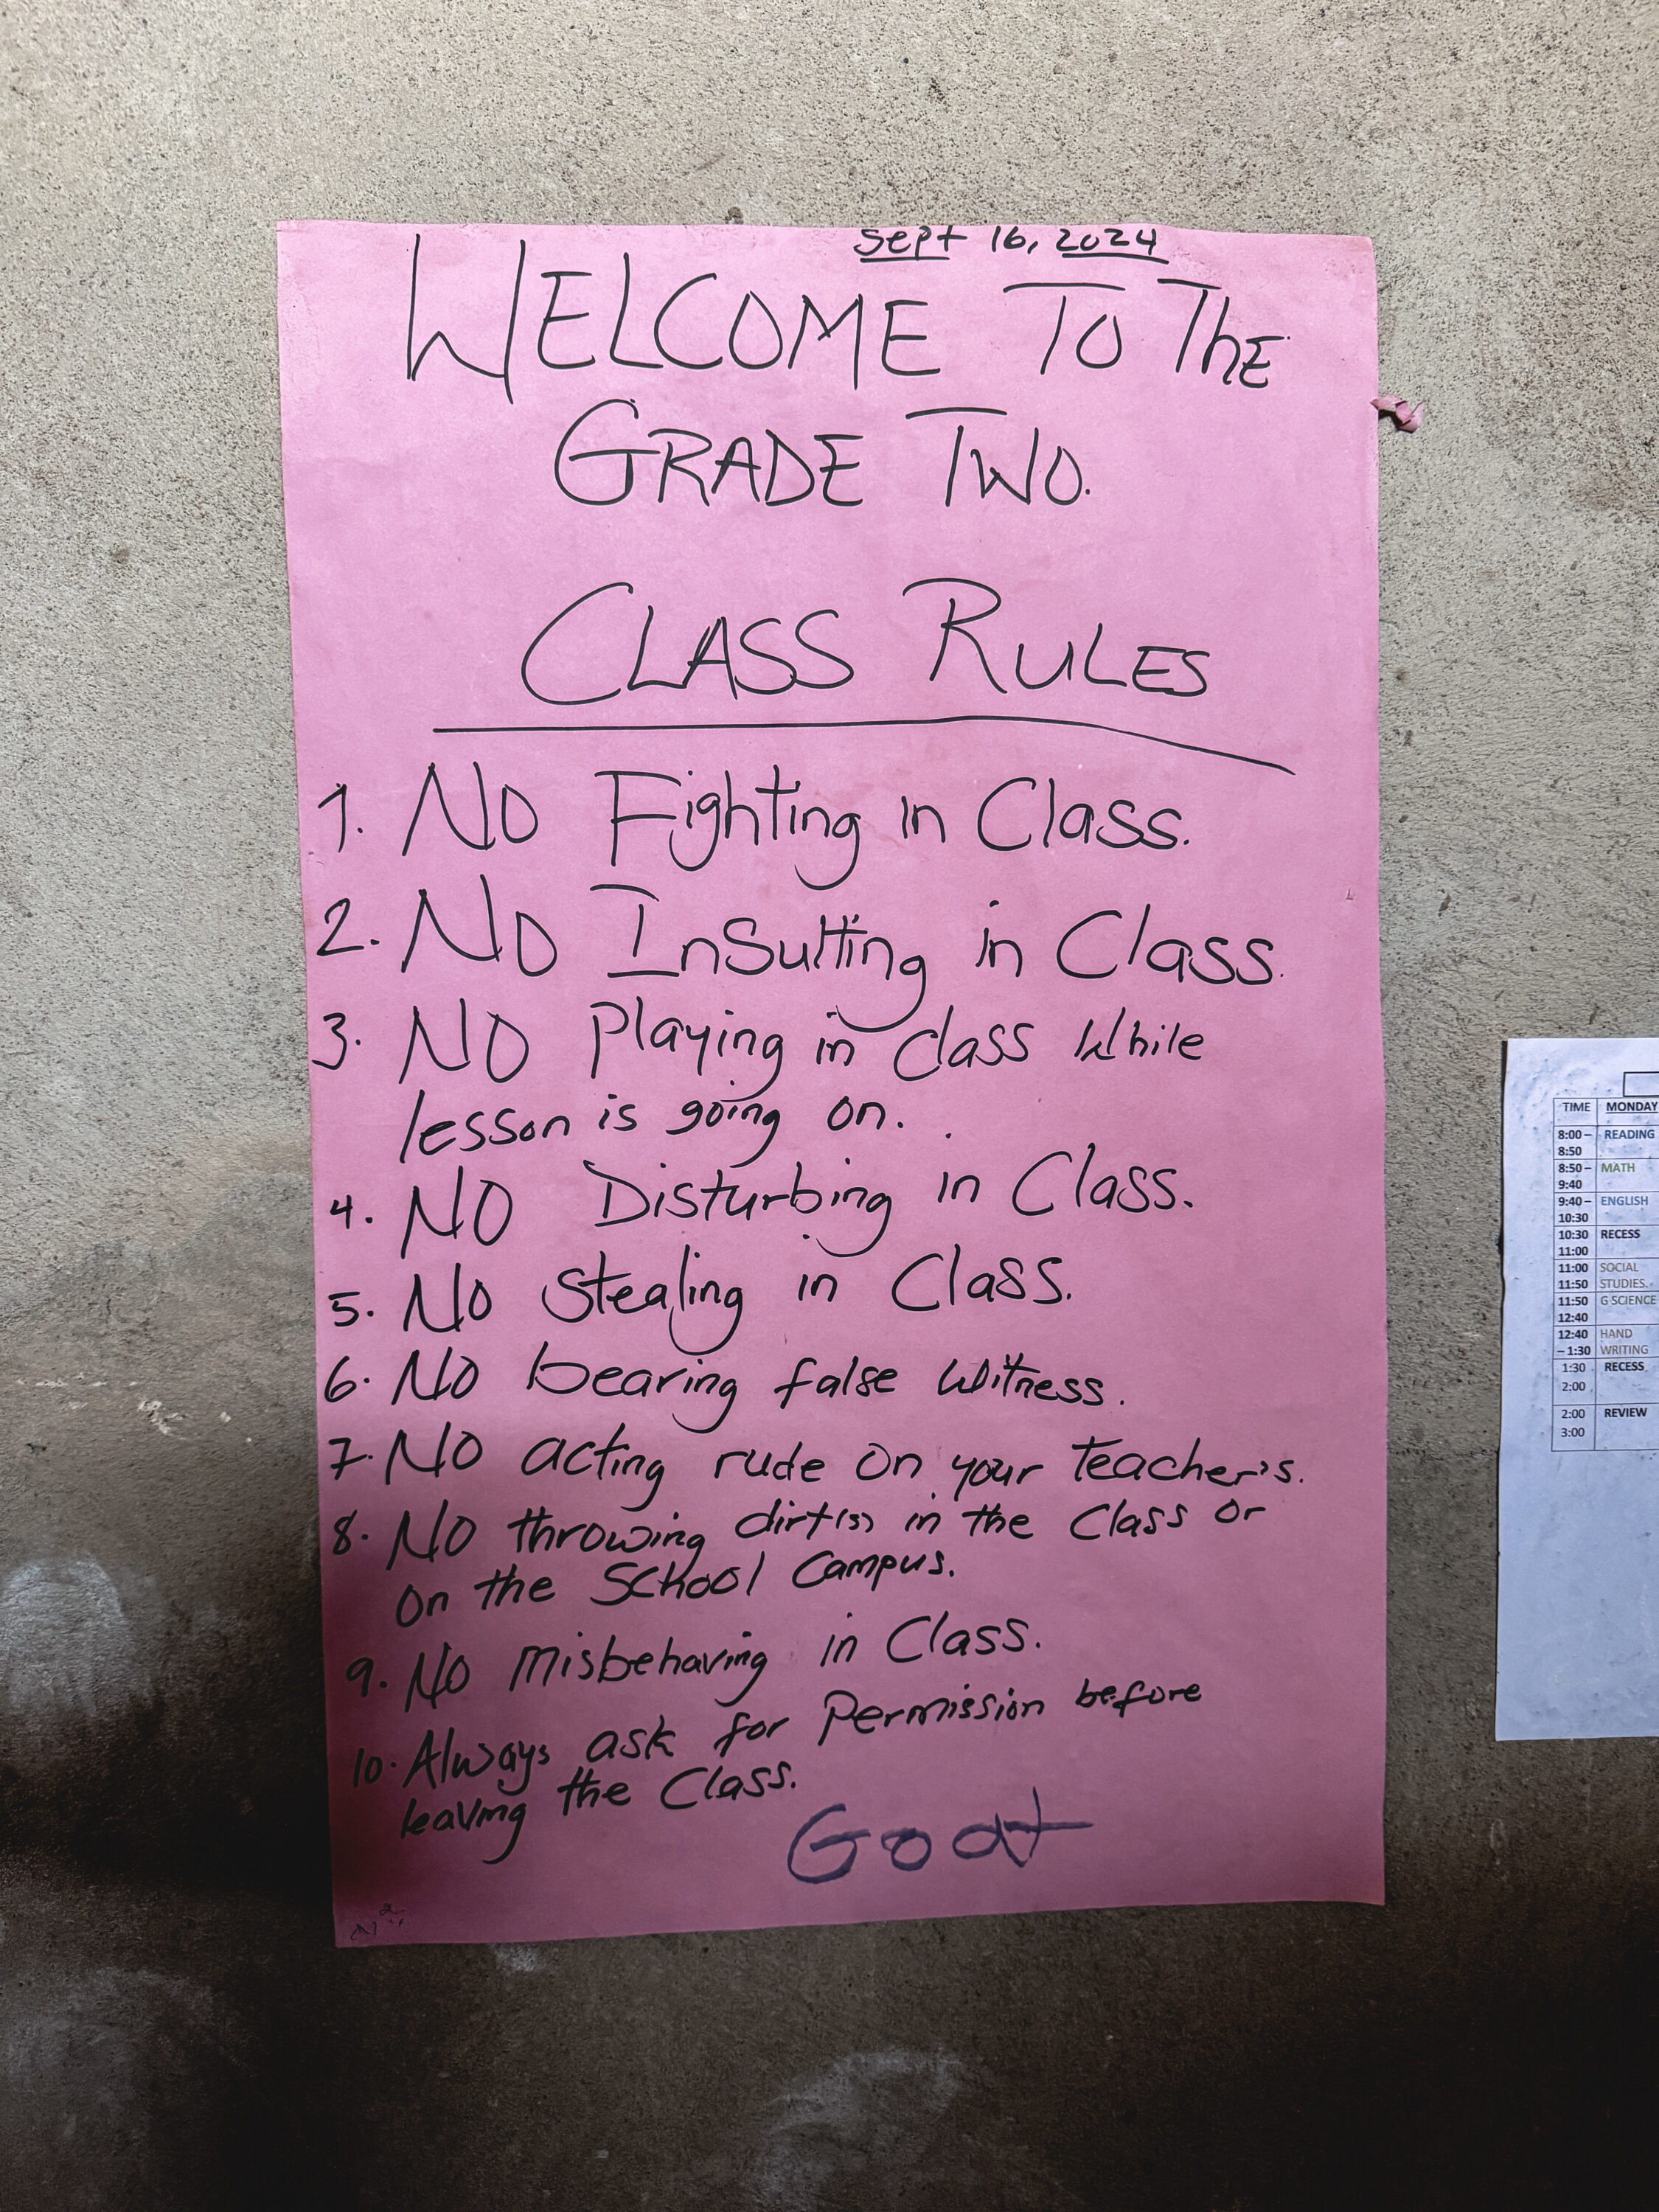 Sept 16, 2024
WELCOME TO The
GRADE TWO.
CLASS RULES
1. NO Fighting in Class.
2. NO InSulting in Class.
3. NO Playing in class While
lesson is going on.
4. NO Disturbing in Class.
5. No Stealing in Class.
6. No bearing false Witness.
7. No acting rude on your teacher's.
8. No throwing dirt(s) in the Class or
on the School Campus.
9. No misbehaving in Class.
10. Always ask for Permission before
leaving the Class.
Goat
TIME MONDAY
8:00 – READING
8:50
8:50 – MATH
9:40
9:40 – ENGLISH
10:30
10:30 RECESS
11:00
11:00 SOCIAL
11:50 STUDIES.
11:50 G SCIENCE
12:40
12:40 HAND
– 1:30 WRITING
1:30 RECESS
2:00
2:00 REVIEW
3:00